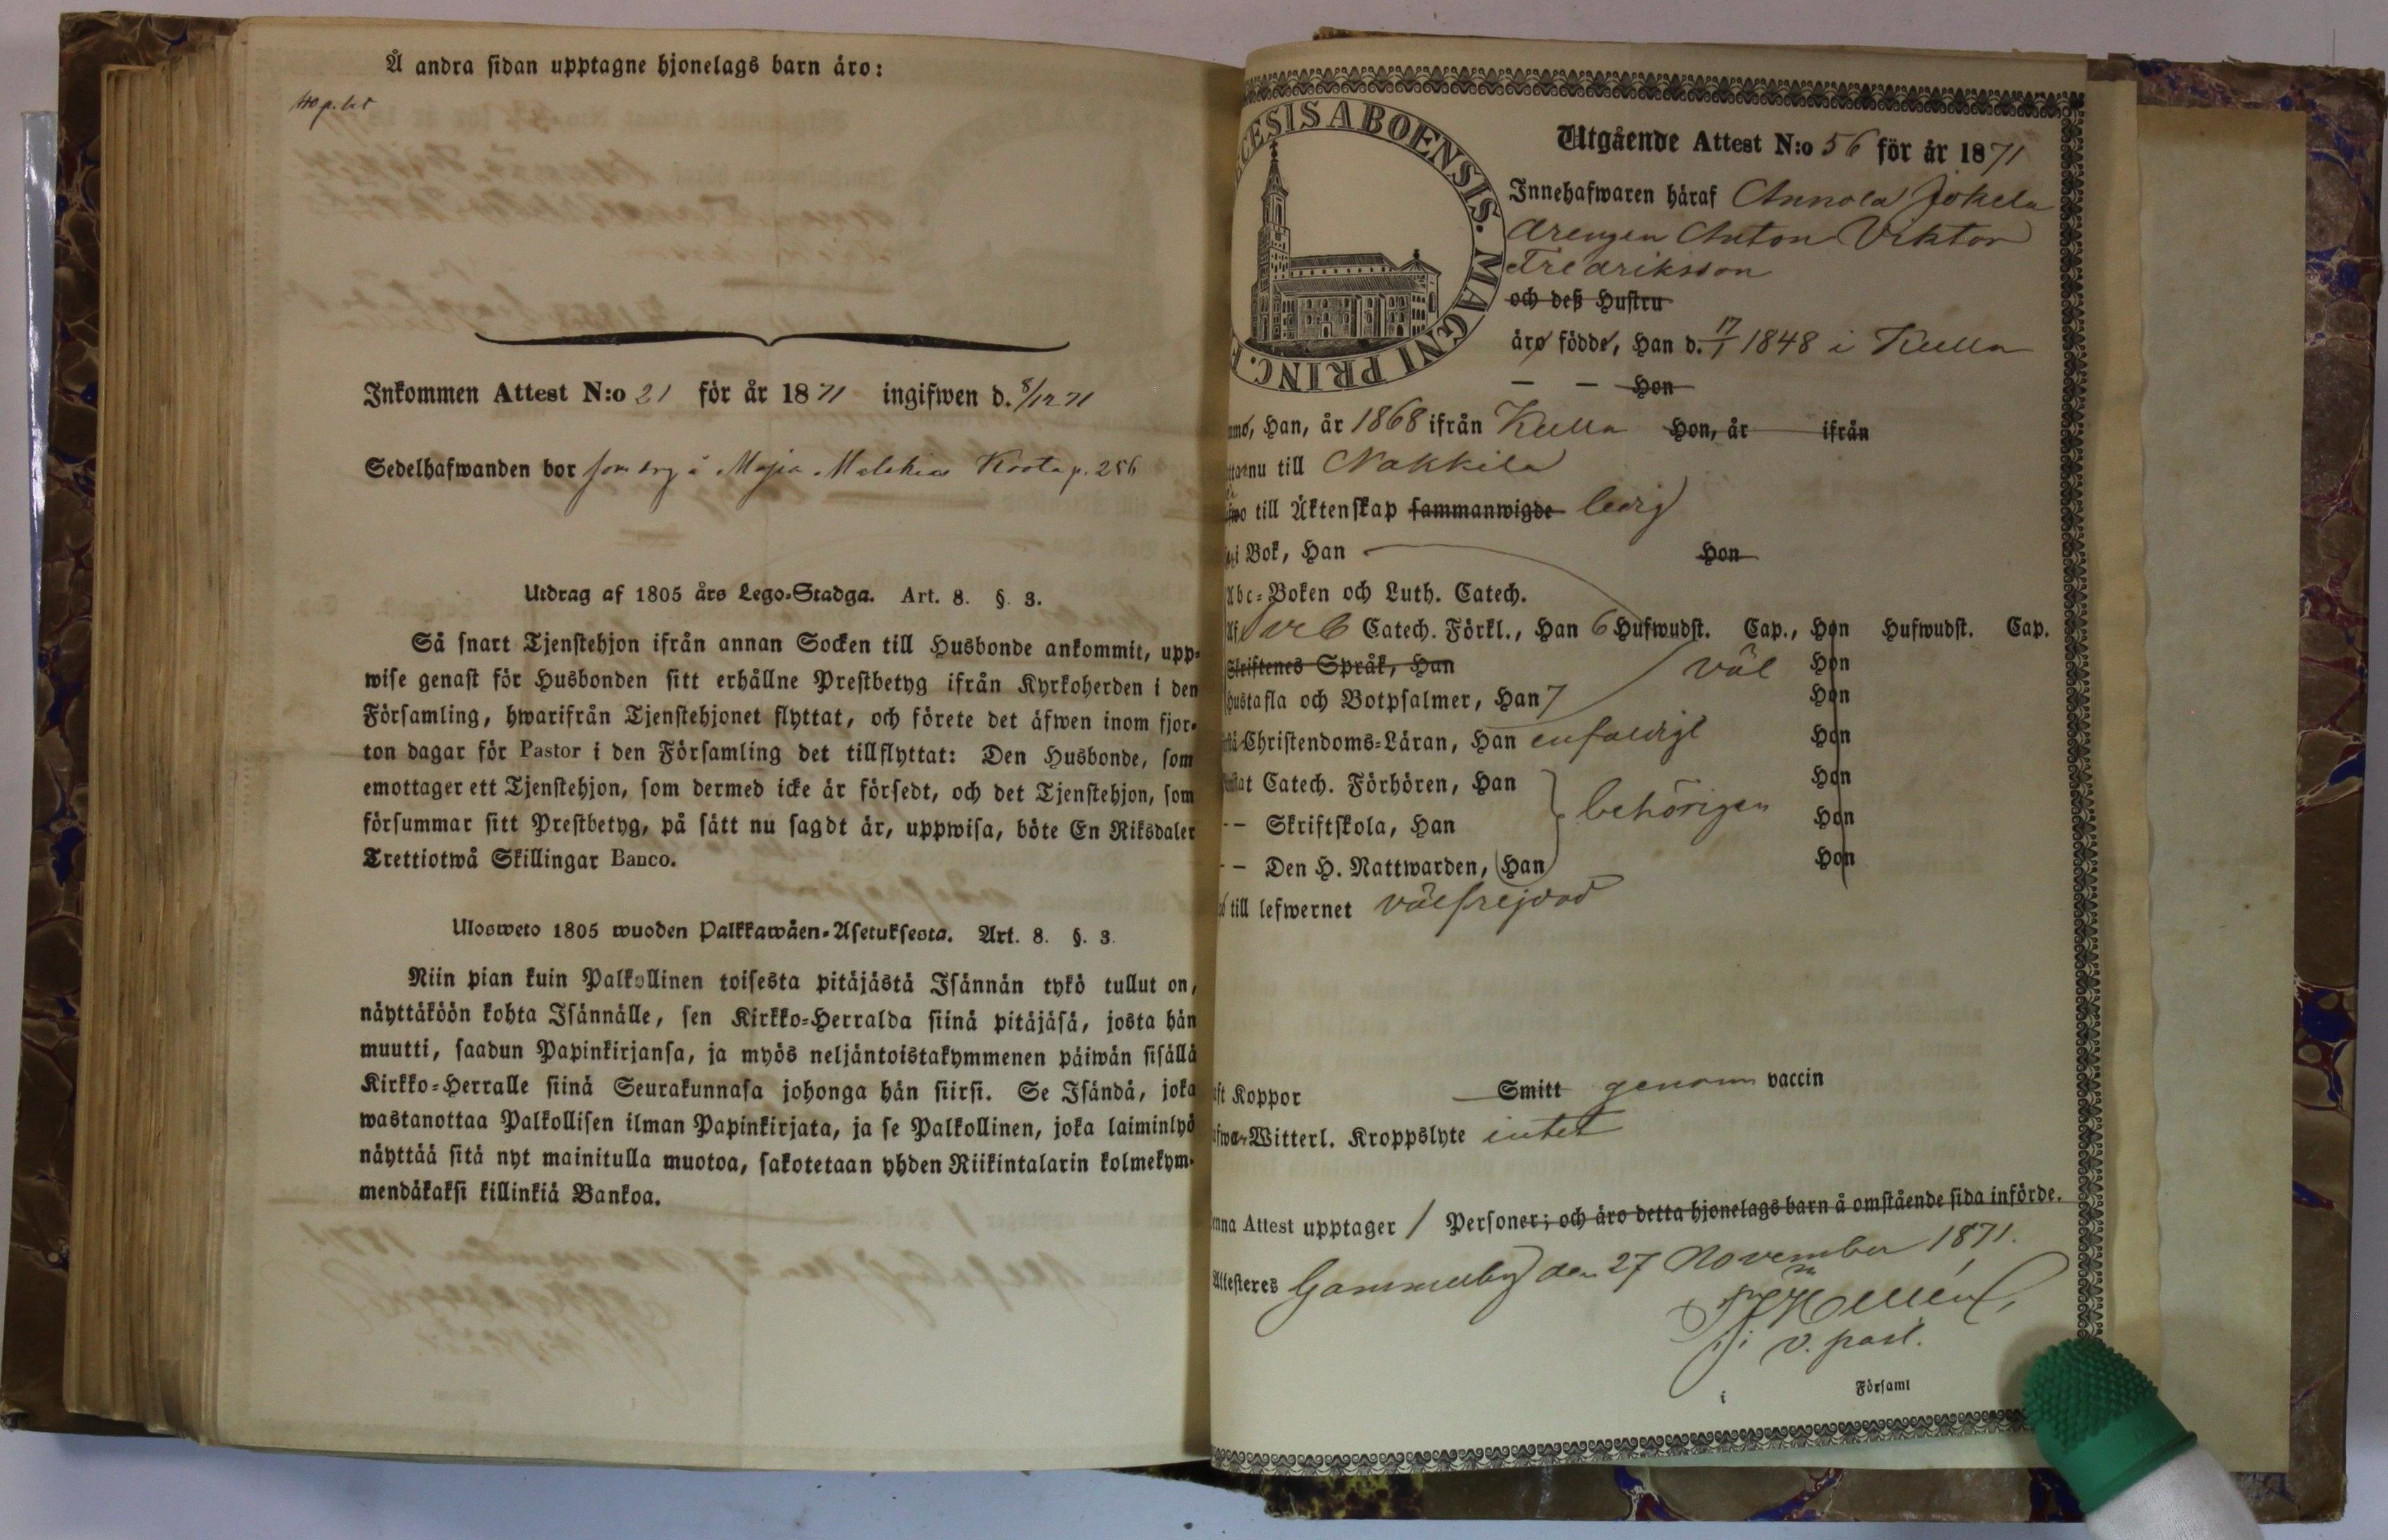 Å andra sidan upptagne hjonelags barn äro:
Inkommen Attest N:o 21 för år 1871 ingifwen d. 8/12 71
Sedelhafwanden bor Maja p. 256
Utdrag af 1805 års Lego-Stadga. Art. 8. §. 3.
Så snart Tjenstehjon ifrån annan Socken till Husbonde ankommit, upp-
wise genast för Husbonden sitt erhållne Prestbetyg ifrån Kyrkoherden i den
Församling, hwarifrån Tjenstehjonet flyttat, och förete det äfwen inom fjor-
ton dagar för Pastor i den Församling det tillflyttat: Den Husbonde, som
emottager ett Tjenstehjon, som dermed icke är försedt, och det Tjenstehjon, som
försummar sitt Prestbetyg, på sätt nu sagdt är, uppwisa, böte En Riksdaler
Trettiotwå Skillingar Banco.
Ulosweto 1805 wuoden Palkkawäen-Asetuksesta. Art. 8. §. 3.
Niin pian kuin Palkollinen toisesta pitäjästä Isännän tykö tullut on,
näyttäköön kohta Isännälle, sen Kirkko-Herralda siinä pitäjäsä, josta hän
muutti, saadun Papinkirjansa, ja myös neljäntoistakymmenen päiwän sisällä
Kirkko-Herralle siinä Seurakunnasa johonga hän siirsi. Se Isändä, joka
wastanottaa Palkollisen ilman Papinkirjata, ja se Palkollinen, joka laiminlyö
näyttää sitä nyt mainitulla muotoa, sakotetaan yhden Riikintalarin kolmekym-
mendäkaksi killinkiä Bankoa.
ECESIS ABOENSIS. MAGNI PRINC. F
Utgående Attest N:o 56 för år 1871
Innehafwaren häraf Annola Jokela
drengen Anton Viktor
Fredriksson
och deß Hustru
äro födde, Han d. 17/1 1848 i Kulla
— — Hon
Han, år 1868 ifrån Kulla Hon, år ifrån
nu till Nakkila
till Äktenskap sammanwigde ledig
i Bok, Han Hon
Abc-Boken och Luth. Catech.
Af Catech. Förkl., Han 6 Hufwudst. Cap., Hon Hufwudst. Cap.
Skriftenes Språk, Han väl Hon
Hustafla och Botpsalmer, Han 7 Hon
Christendoms-Läran, Han enfaldigt Hon
Catech. Förhören, Han Hon
-- Skriftskola, Han behörigen Hon
-- Den H. Nattwarden, Han Hon
till lefwernet välfrejdad
Koppor Smitt genom vaccin
Witterl. Kroppslyte intet
Attest upptager 1 Personer; och äro detta hjonelags barn å omstående sida införde.
Attesteres Gammelby den 27 November 1871.
v. past.
i Församl